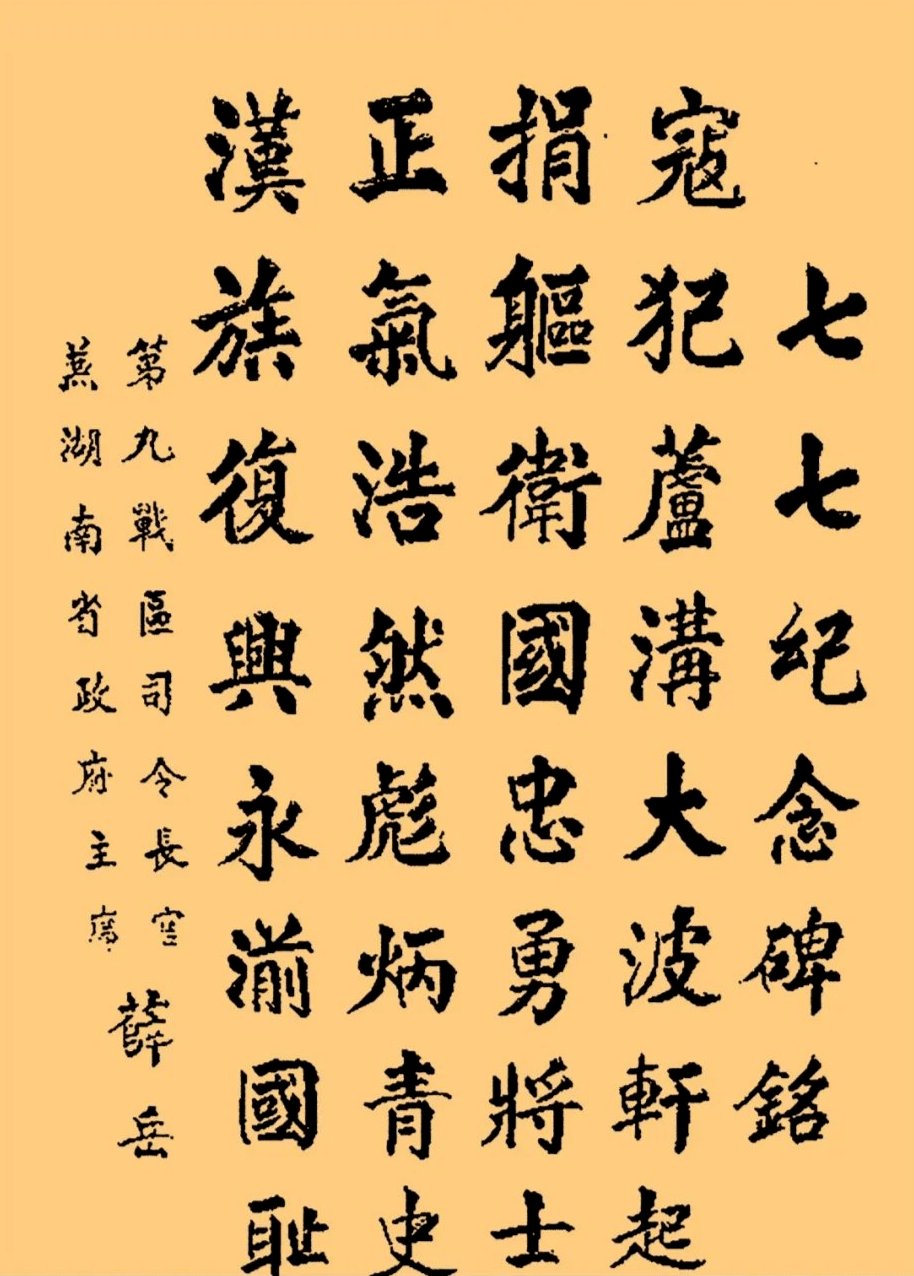 七七纪念碑銘
寇犯蘆溝大波軒起
捐軀衛國忠勇將士
正氣浩然彪炳青史
漢族復興永湔國耻
第九戰區司令長官
蒸湖南省政府主席
薛岳